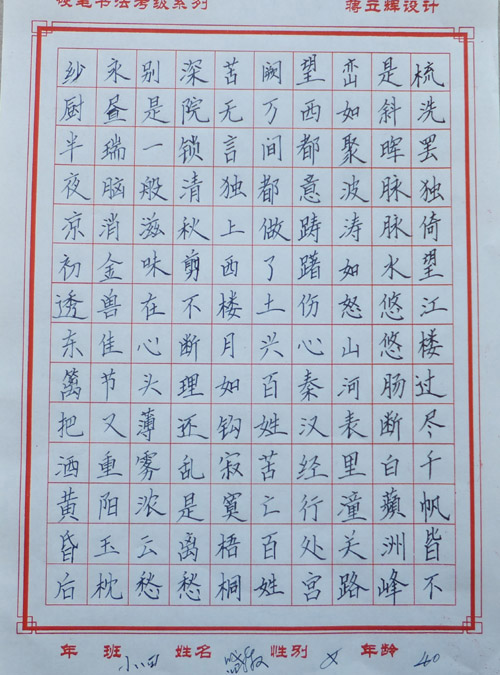 硬笔书法考级系列
蒋立辉设计
梳洗罢独倚望江楼过尽千帆皆不
是斜晖脉脉水悠悠肠断白蘋洲峰
峦如聚波涛如怒山河表里潼关路
望西都意踌躇伤心秦汉经行处宫
阙万间都做了土兴百姓苦亡百姓
苦无言独上西楼月如钩寂寞梧桐
深院锁清秋剪不断理还乱是离愁
别是一般滋味在心头薄雾浓云愁
永昼瑞脑消金兽佳节又重阳玉枕
纱厨半夜凉初透东篱把酒黄昏后
年 班 姓名 性别 女 年龄 40